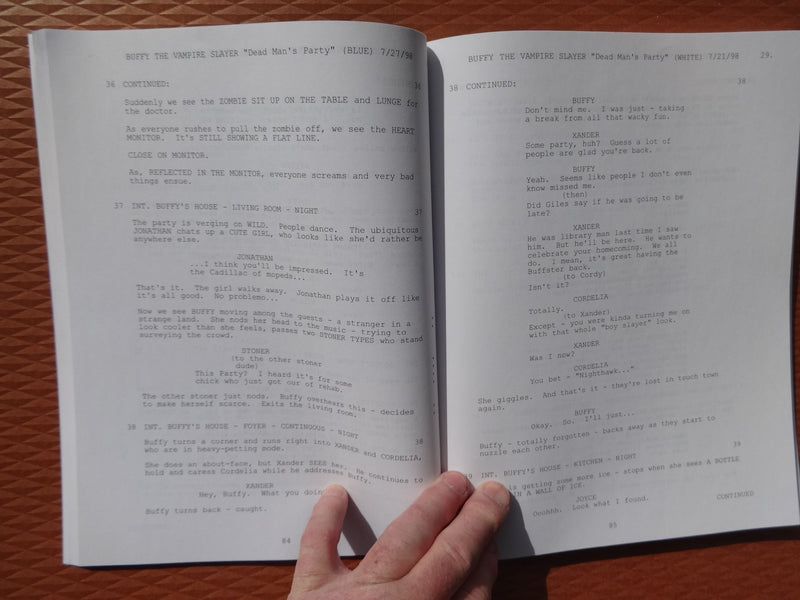 BUFFY THE VAMPIRE SLAYER "Dead Man's Party" (BLUE) 7/27/98
36 CONTINUED: 36
Suddenly we see the ZOMBIE SIT UP ON THE TABLE and LUNGE for
the doctor.
As everyone rushes to pull the zombie off, we see the HEART
MONITOR. It's STILL SHOWING A FLAT LINE.
CLOSE ON MONITOR.
As, REFLECTED IN THE MONITOR, everyone screams and very bad
things ensue.
37 INT. BUFFY'S HOUSE - LIVING ROOM - NIGHT 37
The party is verging on WILD. People dance. The ubiquitous
JONATHAN chats up a CUTE GIRL, who looks like she'd rather be
anywhere else.
JONATHAN
...I think you'll be impressed. It's
the Cadillac of mopeds...
That's it. The girl walks away. Jonathan plays it off like
it's all good. No problemo...
Now we see BUFFY moving among the guests - a stranger in a
strange land. She nods her head to the music - trying to
look cooler than she feels, passes two STONER TYPES who stand
surveying the crowd.
STONER
(to the other stoner
dude)
This Party? I heard it's for some
chick who just got our of rehab.
The other stoner just nods. Buffy overhears this - decides
to make herself scarce. Exits the living room.
38 INT. BUFFY'S HOUSE - FOYER - CONTINUOUS - NIGHT 38
Buffy turns a corner and runs right into XANDER and CORDELIA,
who are in heavy-petting mode.
She does an about-face, but Xander SEES her. He continues to
hold and caress Cordelia while he addresses Buffy.
XANDER
Hey, Buffy. What you doin
Buffy turns back - caught.
84
BUFFY THE VAMPIRE SLAYER "Dead Man's Party" (WHITE) 7/21/98 29.
38 CONTINUED: 38
BUFFY
Don't mind me. I was just - taking
a break from all that wacky fun.
XANDER
Some party, huh? Guess a lot of
people are glad you're back.
BUFFY
Yeah. Seems like people I don't even
know missed me.
(then)
Did Giles say if he was going to be
late?
XANDER
He was library man last time I saw
him. But he'll be here. He wants to
celebrate your homecoming. We all
do. I mean, it's great having the
Buffster back.
(to Cordy)
Isn't it?
CORDELIA
Totally.
(to Xander)
Except - you were kinda turning me on
with that whole "boy slayer" look.
XANDER
Was I now?
CORDELIA
You bet - "Nighthawk..."
She giggles. And that's it - they're lost in touch town
again.
BUFFY
Okay. So. I'll just...
Buffy - totally forgotten - backs away as they start to
nuzzle each other.
39 INT. BUFFY'S HOUSE - KITCHEN - NIGHT 39
is getting some more ice - stops when she sees A BOTTLE
IN A WALL OF ICE.
JOYCE
Ooohhh. Look what I found.
CONTINUED
85